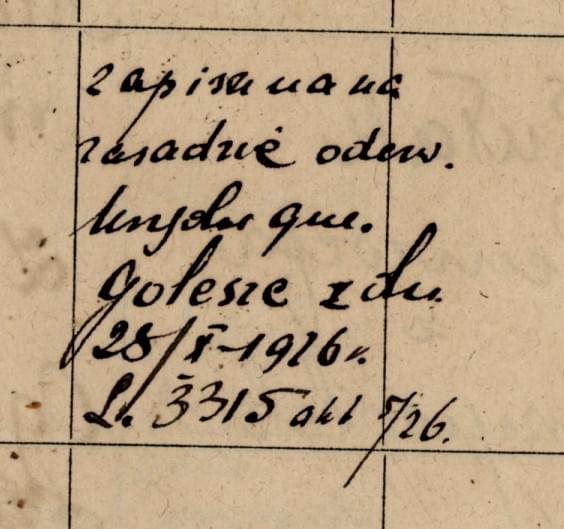 zapisana na
zasadzie odezw.
Urzędu gm.
Golesze z dn.
28/X-1926 r.
L. 3315 akt 5/26.